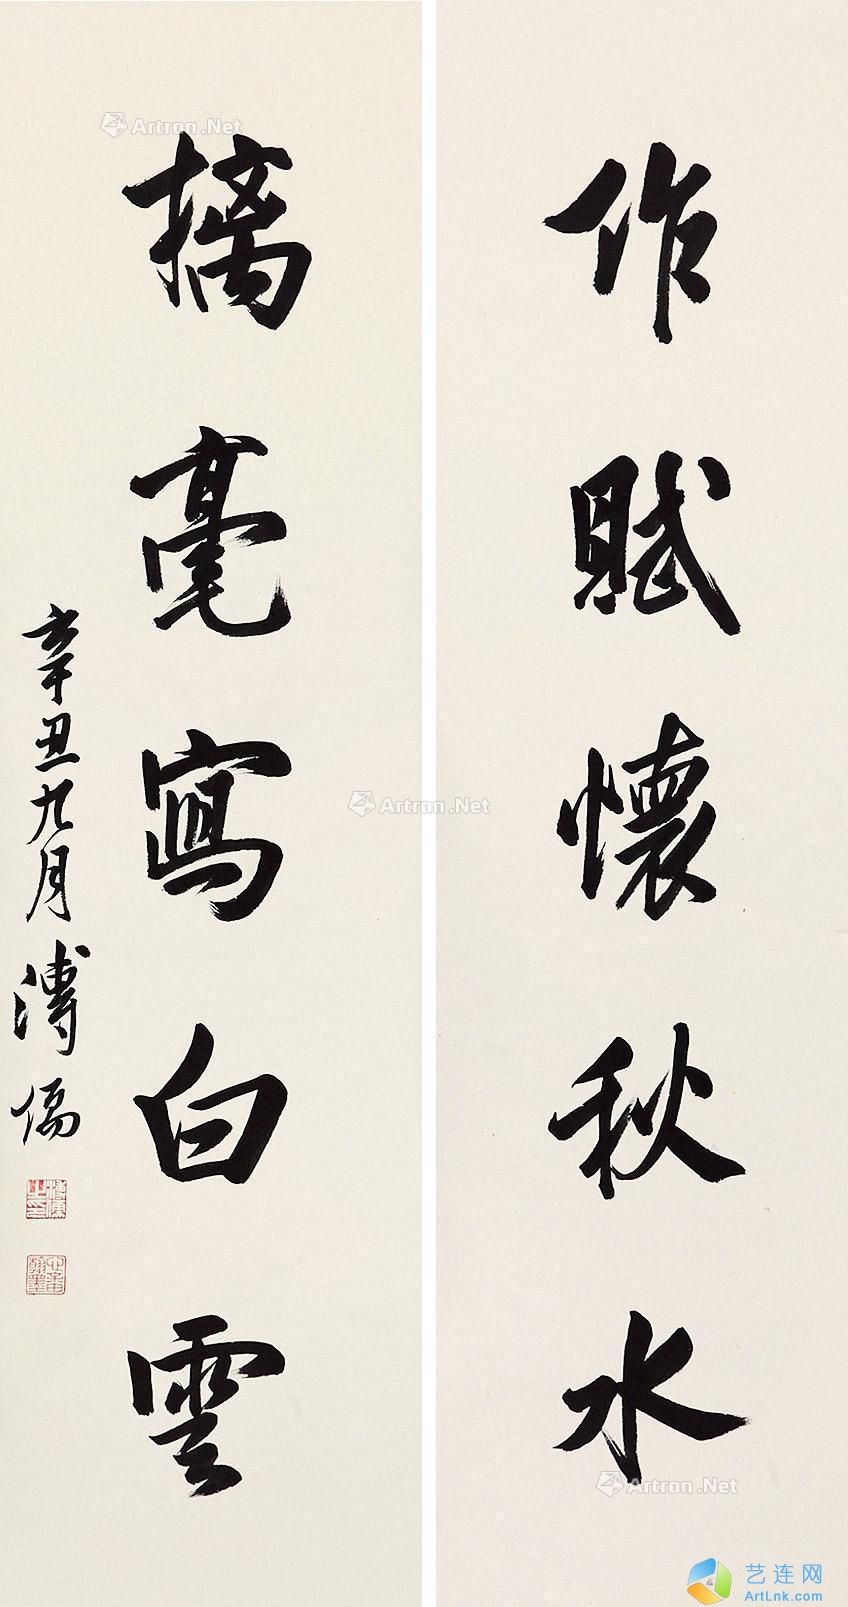 作賦懷秋水
摛毫寫白雲
辛丑九月溥儒
溥儒之印
心畬翰墨
Artron.Net
Artron.Net
Artron.Net
艺连网
ArtLnk.com